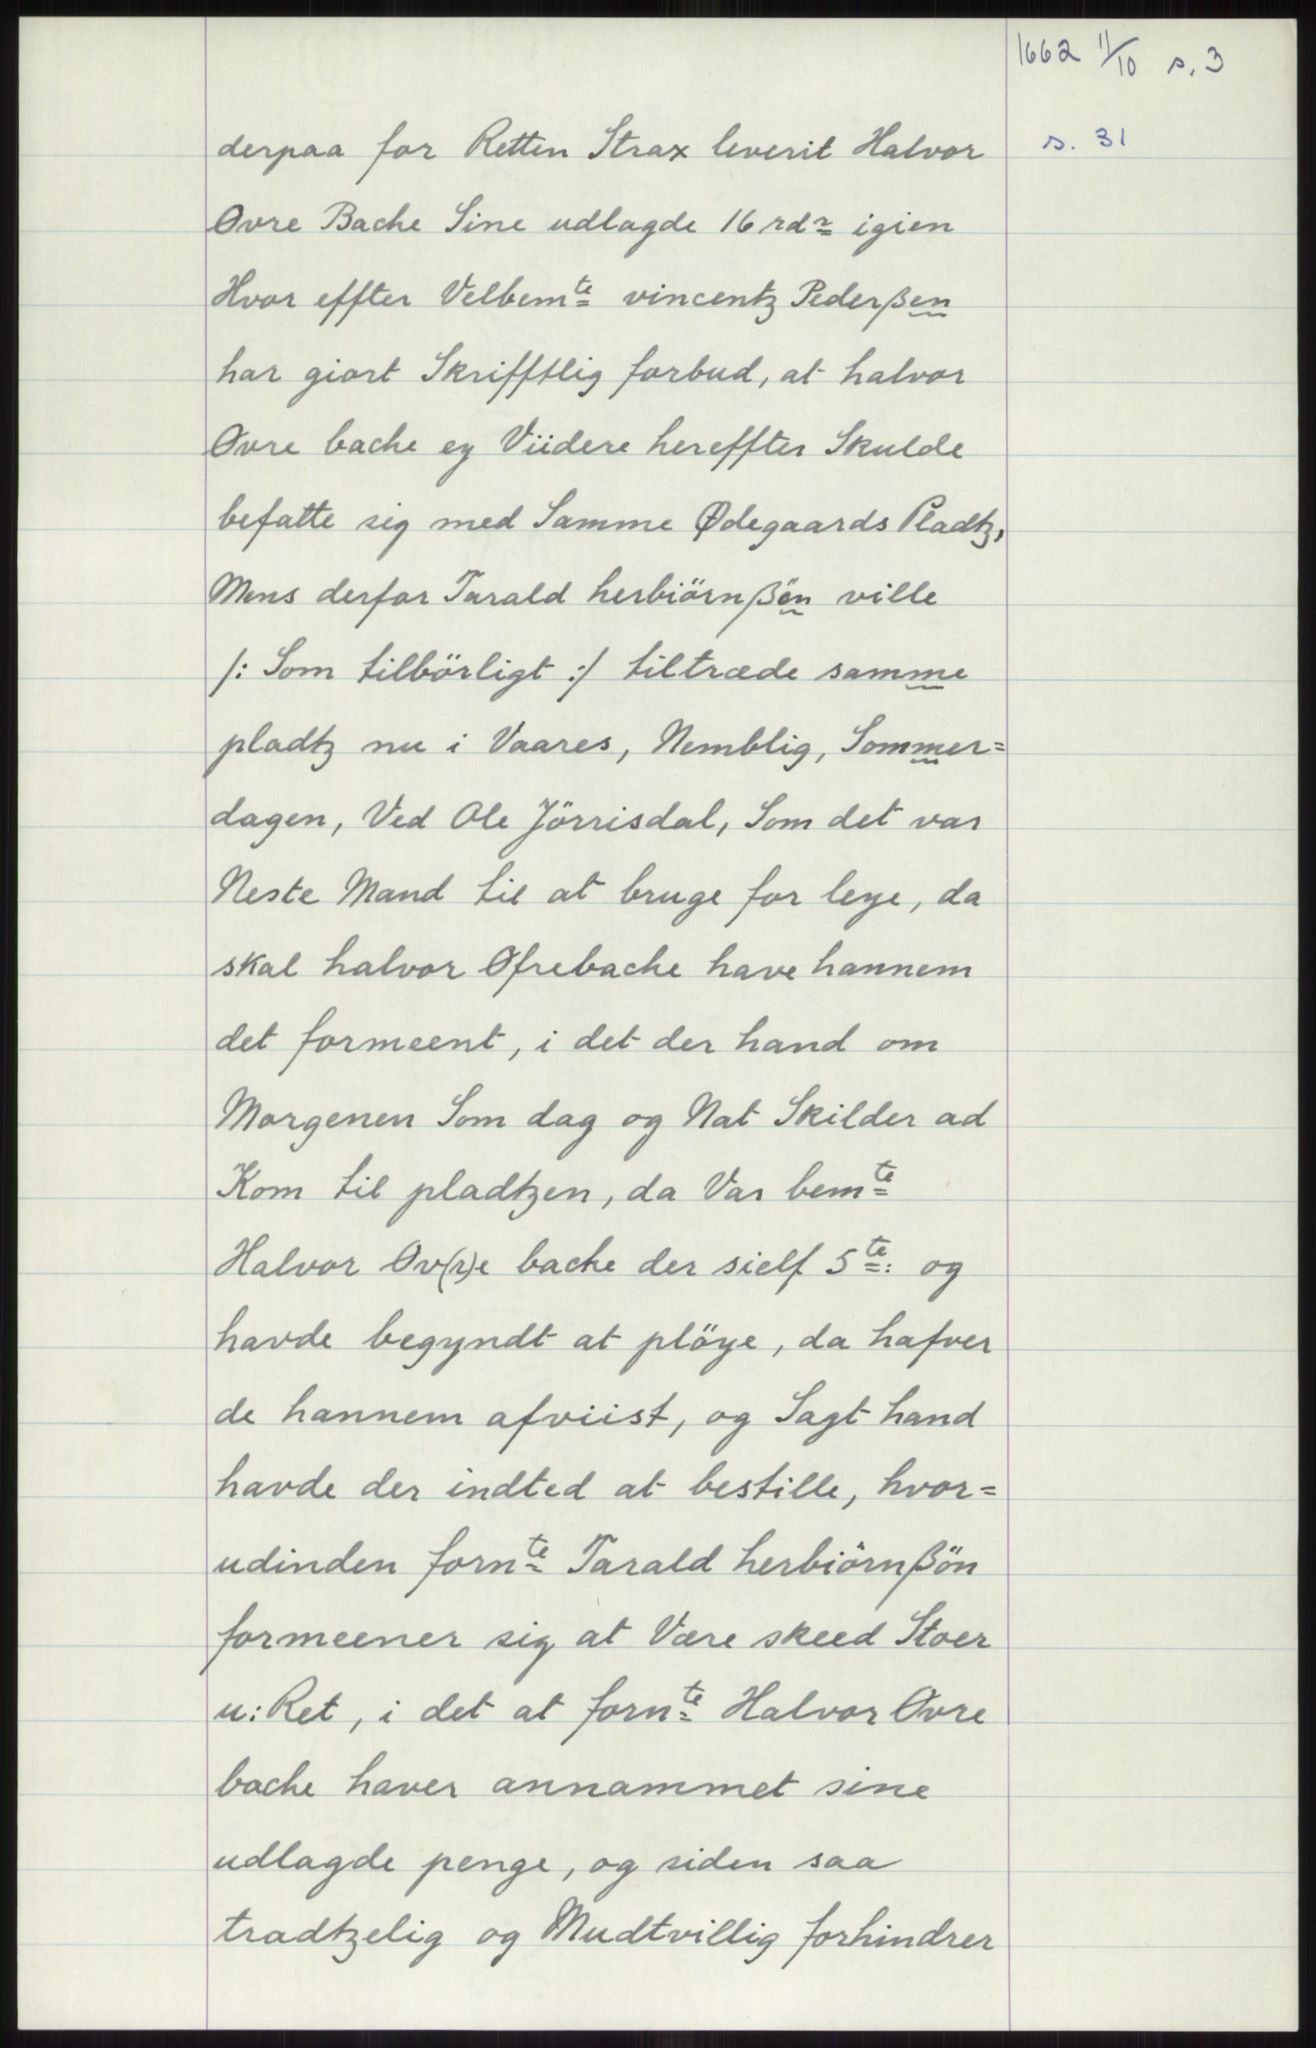 1662 11/10 s. 3
s. 31
derpaa for Retten Strax leverit Halvor
Ovre Bache Sine udlagde 16 rdr igien
Hvor effter Velbemte vincentz Pederßen
har giort Skrifftlig forbud, at halvor
Ovre bache ey Viidere hereffter Skulde
befatte sig med Samme Ødegaards Pladtz,
Mens derfor Tarald herbiörnßön ville
/: Som tilbörligt :/ tiltræde samme
pladtz nu i Vaares, Nemblig, Sommer=
dagen, Ved Ole Jörrisdal, Som det var
Neste Mand til at bruge for leye, da
skal halvor Ofrebache have hannem
det formeent, i det der hand om
Morgenen Som dag og Nat Skilder ad
Kom til pladtzen, da Var bemte
Halvor Ov(r)e bache der sielf 5te: og
havde begyndt at plöye, da hafver
de hannem afviist, og Sagt hand
havde der indted at bestille, hvor=
udinden fornte Tarald herbiörnßön
formeener sig at Være skeed Stoer
u:Ret, i det at fornte Halvor Ovre
bache haver annammet sine
udlagde penge, og siden saa
tradtzelig og Mudtvillig forhindrer